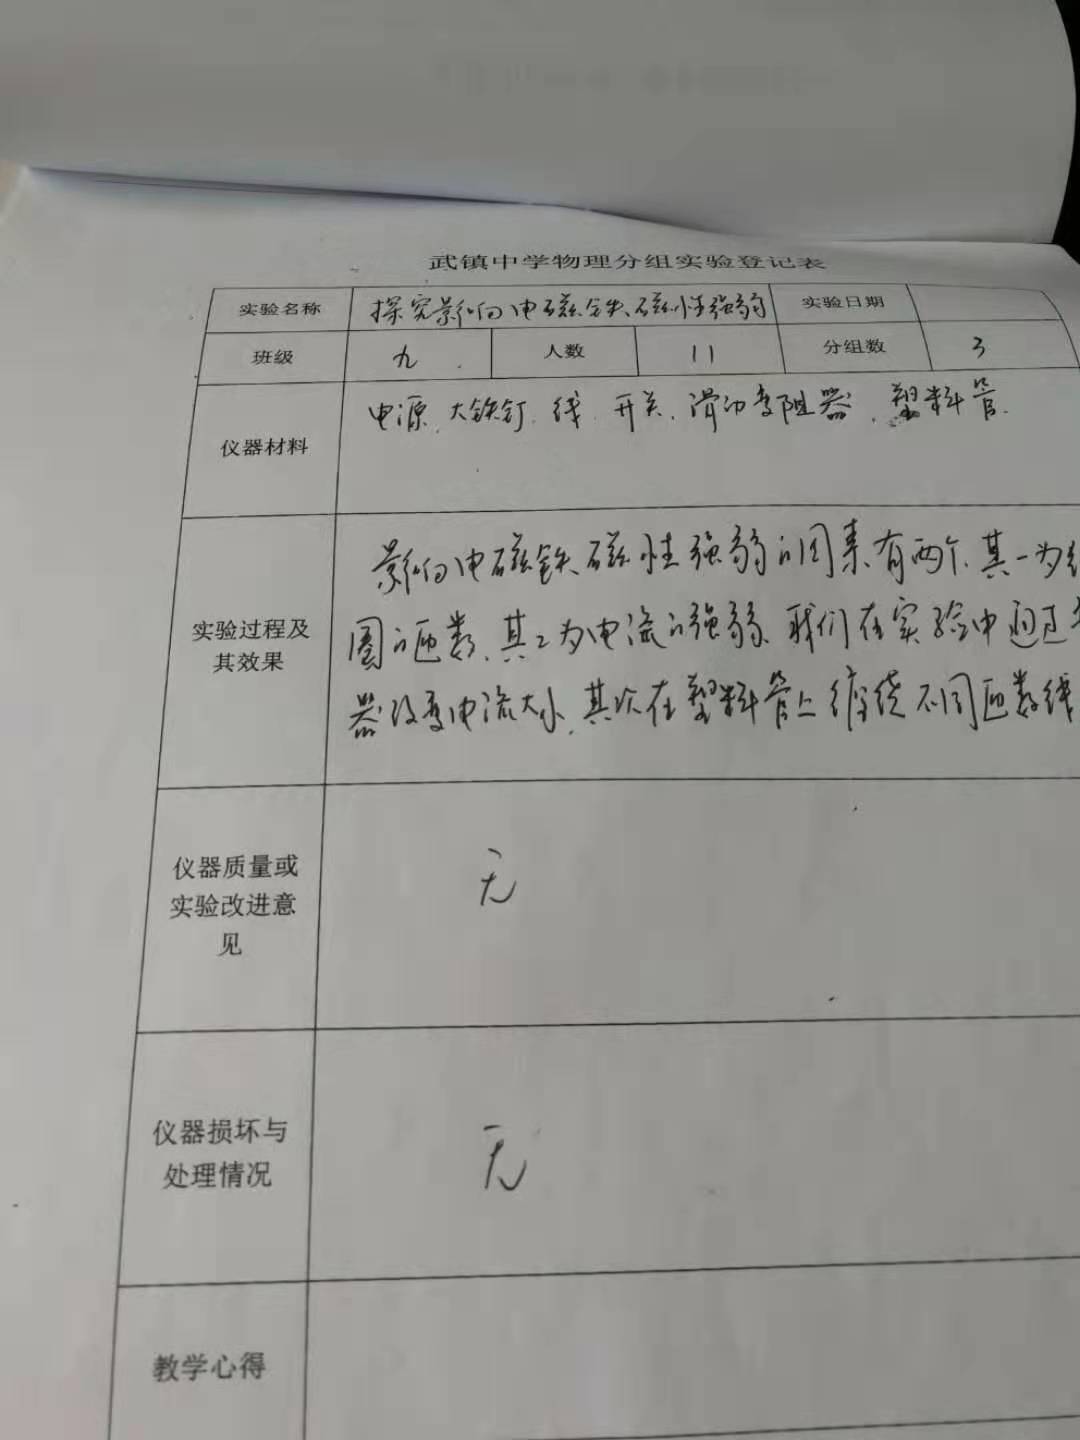 武镇中学物理分组实验登记表
实验名称 探究影响电磁铁磁性强弱 实验日期
班级 九 人数 11 分组数 3
仪器材料 电源、大铁钉、线、开关、滑动变阻器、塑料管
实验过程及其效果
影响电磁铁磁性强弱的因素有两个、其一为
圈的匝数、其二为电流的强弱、我们在实验中通过
器改变电流大小、其次在塑料管上缠绕不同匝数线
仪器质量或
实验改进意
见
无
仪器损坏与
处理情况
无
教学心得